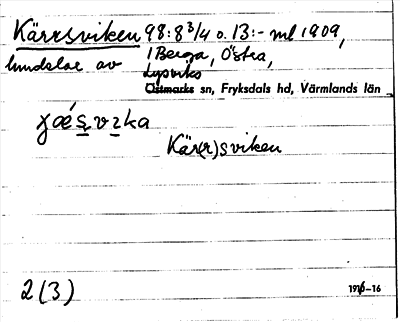 Kärrsviken 98:8 3/4 o. 13:- ml 1909,
lundslar av 1 Berga, Östra,
Lysviks
Östmarks sn, Fryksdals hd, Värmlands län
Kär(r)sviken
2(3)
1916-16